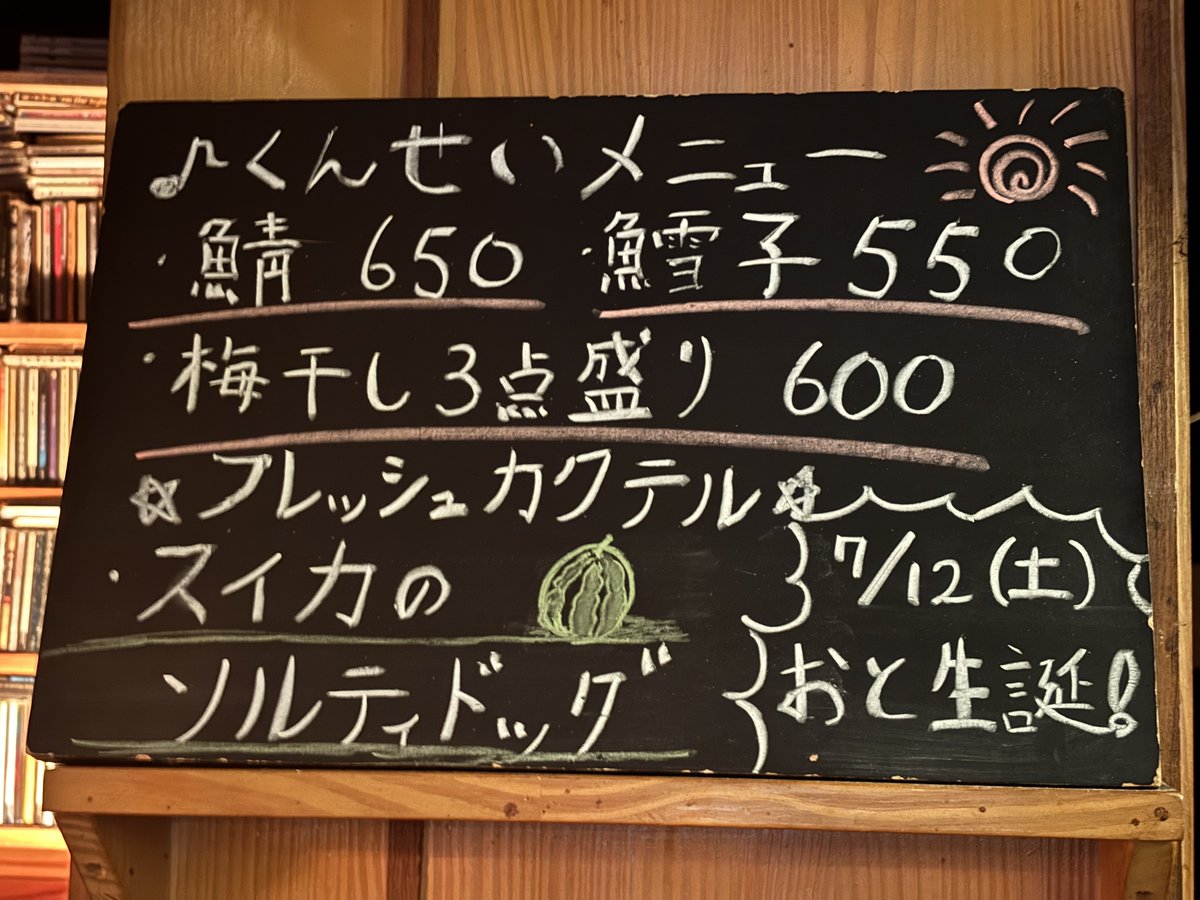 ♪くんせいメニュー
・鯖 650 ・鱈子 550
・梅干し3点盛り 600
☆フレッシュカクテル☆
・スイカの
ソルティドッグ
7/12(土)
おと生誕!